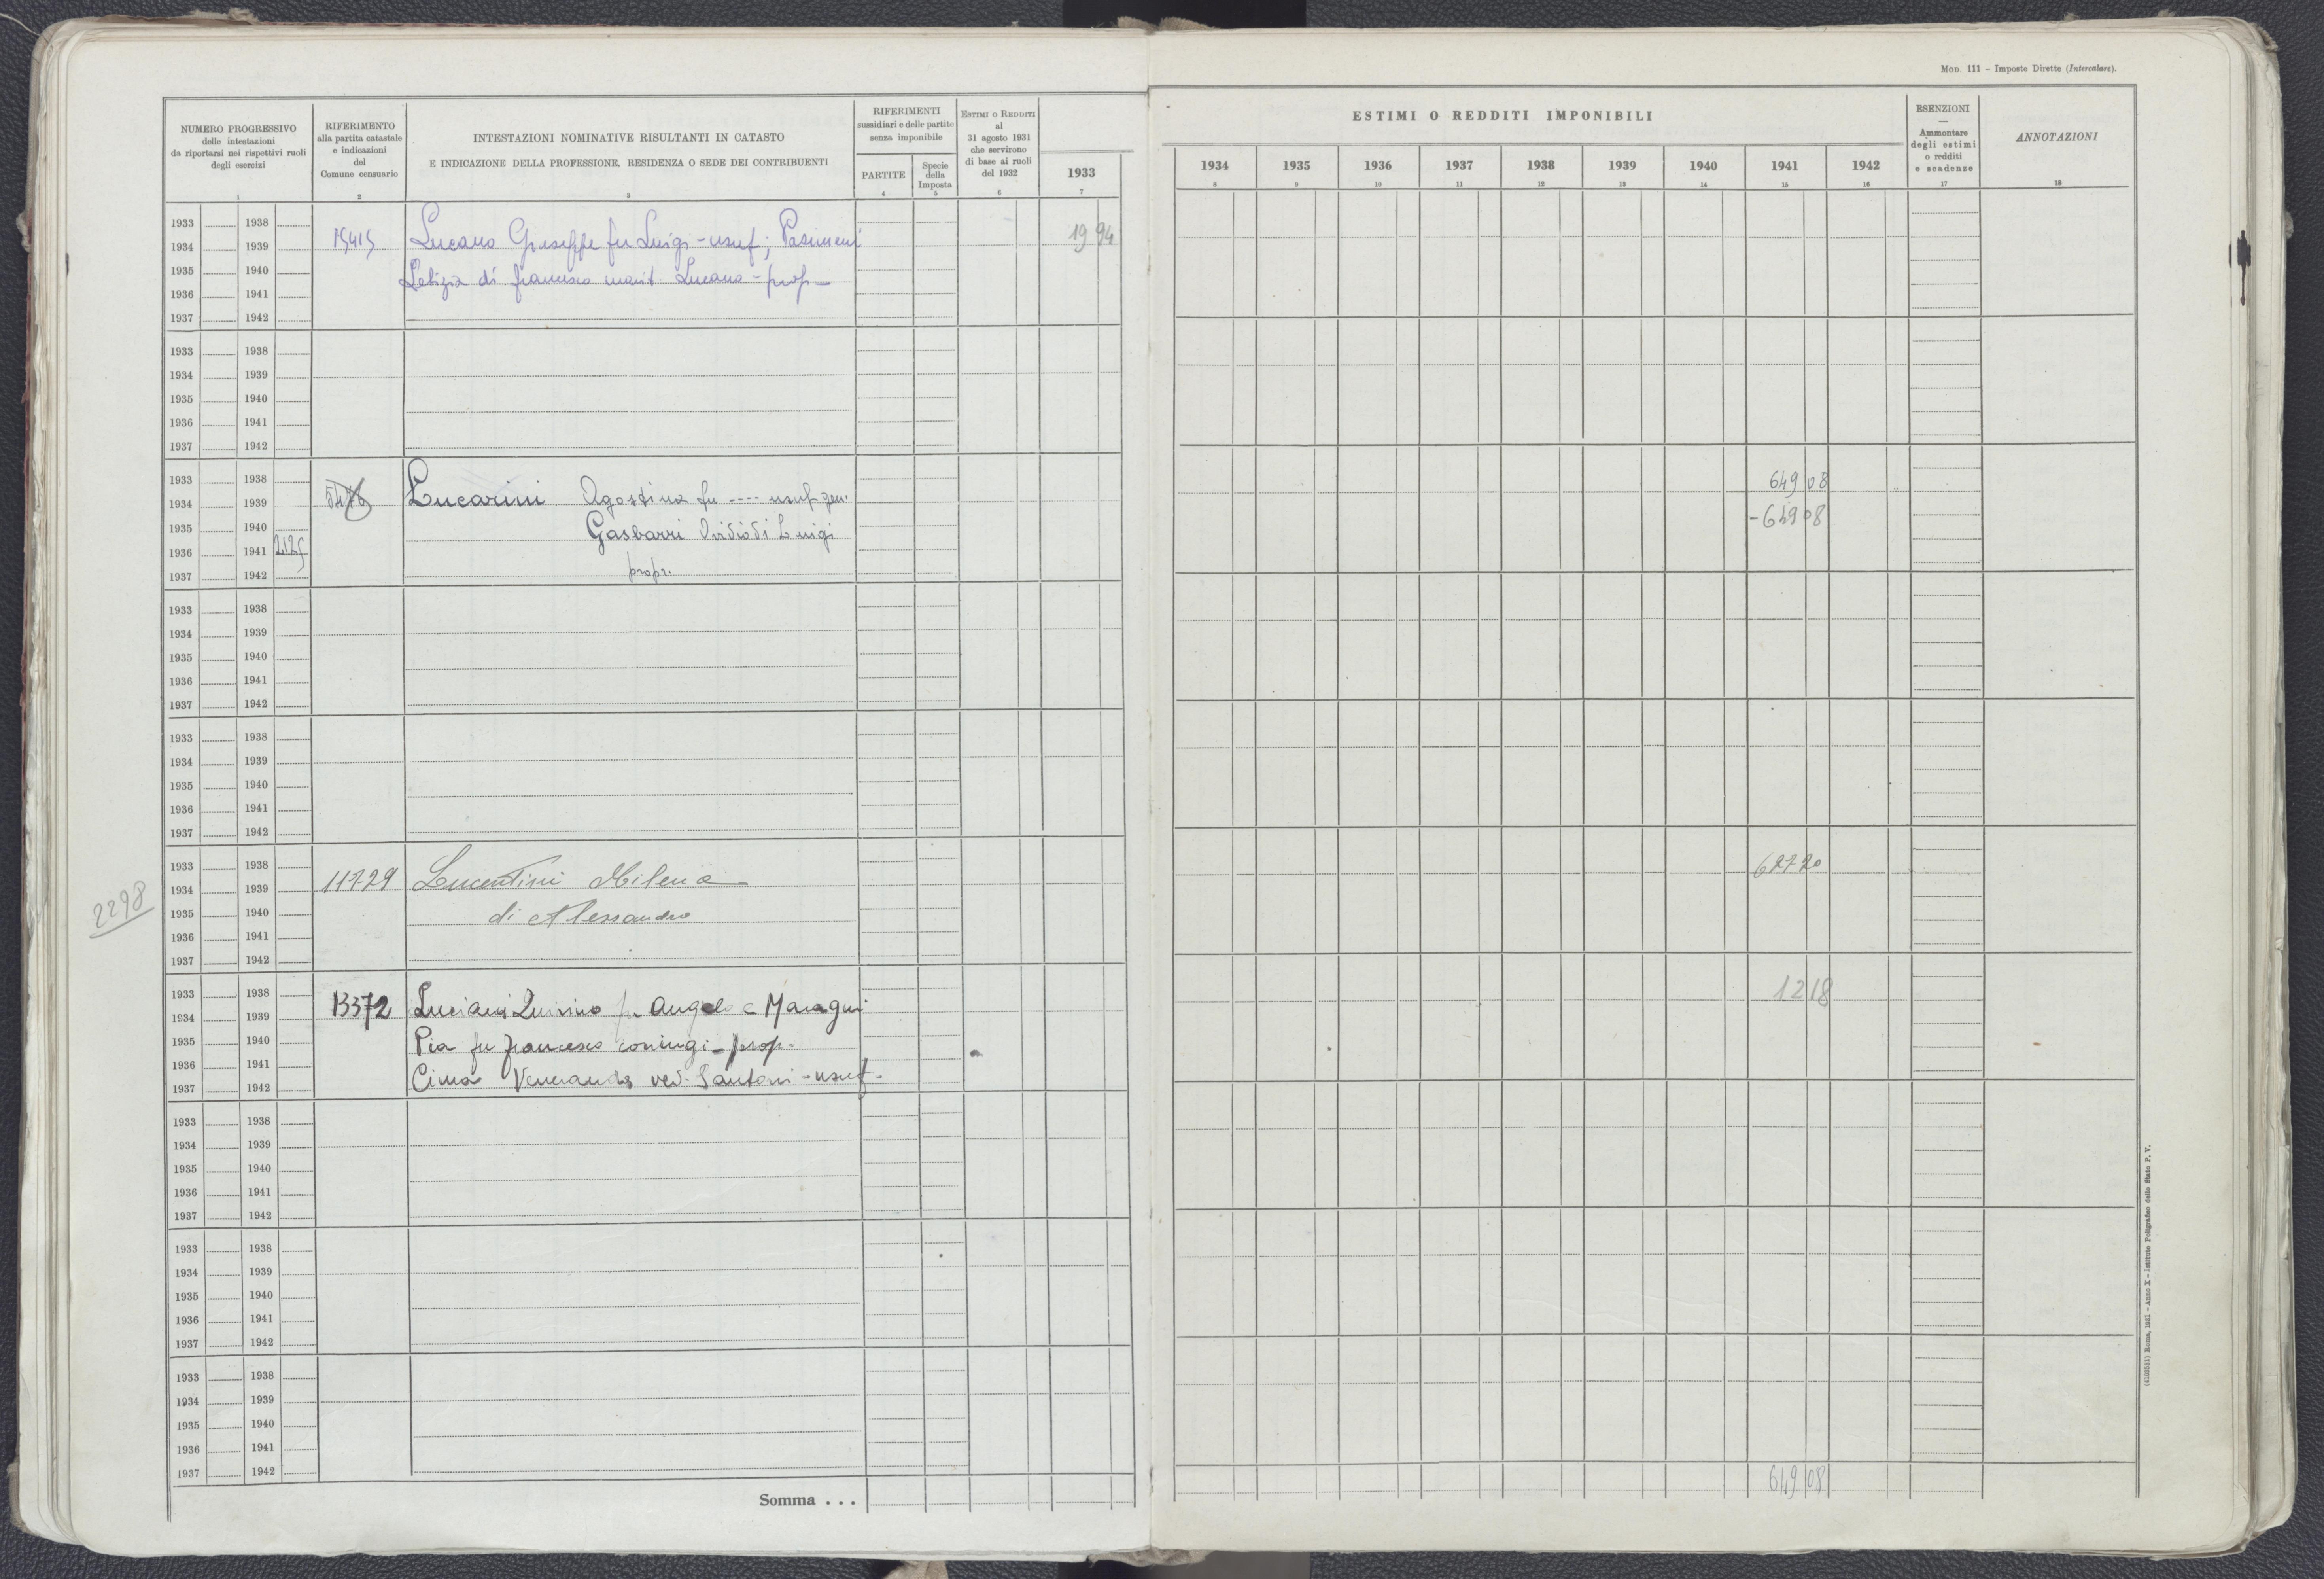 MOD. 111 - Imposte Dirette (Intercalare).
NUMERO PROGRESSIVO
delle intestazioni
da riportarsi nei rispettivi ruoli
degli esercizi
1
RIFERIMENTO
alla partita catastale
e indicazioni
del
Comune censuario
2
INTESTAZIONI NOMINATIVE RISULTANTI IN CATASTO
E INDICAZIONE DELLA PROFESSIONE, RESIDENZA O SEDE DEI CONTRIBUENTI
3
RIFERIMENTI
sussidiari e delle partite
senza imponibile
PARTITE
4
Specie
della
Imposta
5
ESTIMI O REDDITI
al
31 agosto 1931
che servirono
di base ai ruoli
del 1932
6
1933
7
ESTIMI O REDDITI IMPONIBILI
1934 1935 1936 1937 1938 1939 1940 1941 1942
8 9 10 11 12 13 14 15 16
ESENZIONI
—
Ammontare
degli estimi
o redditi
e scadenze
17
ANNOTAZIONI
18
1933 1938
1934 1939 15415 Lucano Giuseppe fu Luigi - usuf; Pasimeni 19 94
1935 1940 Letizia di Francesco marit. Lucano - prop -
1936 1941
1937 1942
1933 1938
1934 1939
1935 1940
1936 1941
1937 1942
1933 1938 649 08
1934 1939 Lucarini Agostina fu ---- usuf. gen. - 649 08
1935 1940 Gasbarri Ovidio di Luigi
1936 1941 2125
1937 1942 propr.
1933 1938
1934 1939
1935 1940
1936 1941
1937 1942
1933 1938
1934 1939
1935 1940
1936 1941
1937 1942
1933 1938 627 20
2298 1934 1939 11729 Lucentini Milena
1935 1940 di Alessandro
1936 1941
1937 1942
1933 1938 12 18
1934 1939 13372 Luciani Quirino fu Angelo e Maragni
1935 1940 Pia fu Francesco coniugi - prop.
1936 1941
1937 1942 Cima Veneranda ved. Santoni - usuf.
1933 1938
1934 1939
1935 1940
1936 1941
1937 1942
1933 1938
1934 1939
1935 1940
1936 1941
1937 1942
1933 1938
1934 1939
1935 1940
1936 1941
1937 1942
Somma . . . 649 08
Roma, 1931 - Anno X - Istituto Poligrafico dello Stato P. V.